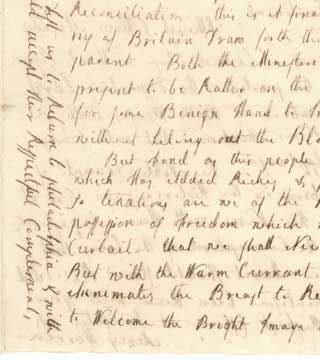 Reconciliation This is it
ny of Britain Draw forth the
parent Both the Minester
present to be Rather on the
for some Benign Hand to
without Leting out the Blo
But fond as this people
which Has Added Riches &
so tenatious are we of the
possession of freedom which
Curtail that we shall Ne
But with the Warm Currant
Annimates the Breast to Re
to Welcome the Bright Image
left us to Return to philadelphia & with
accept their Respectful Complement,